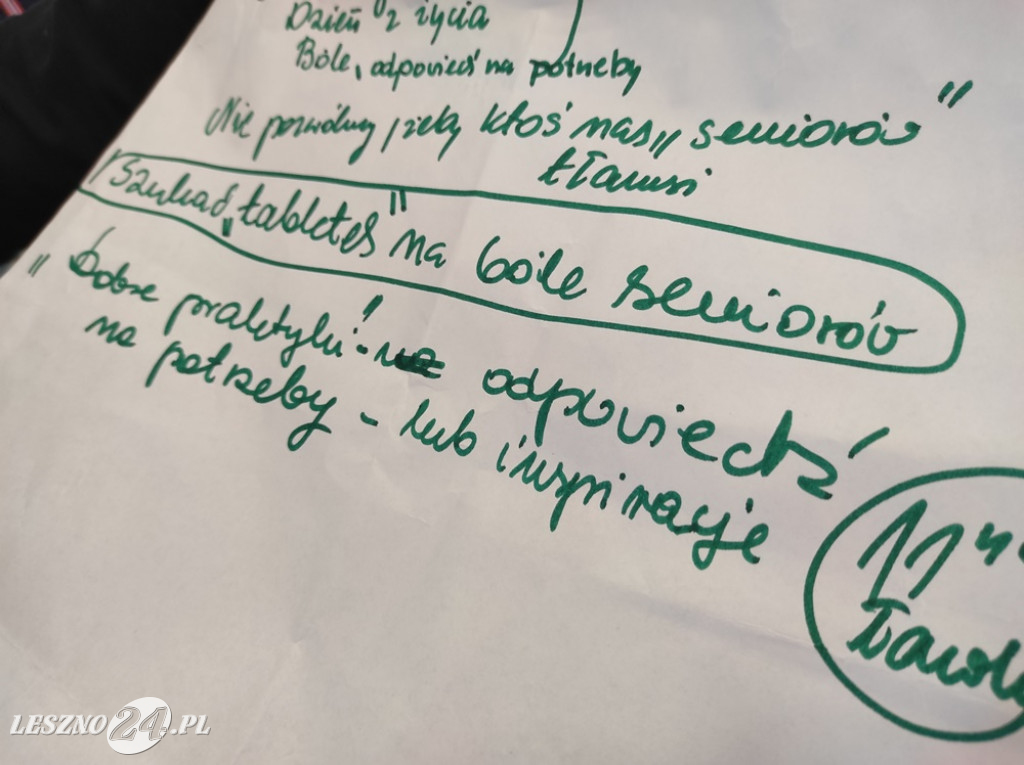 Dzień z życia
Bóle, odpowiedź na potrzeby
Nie pozwólmy, żeby ktoś nas „seniorów"
tłamsi
Szukać „tabletek" na bóle seniorów
„Dobre praktyki" - na odpowiedź
na potrzeby - lub inspiracje
11"
LESZNO24.PL